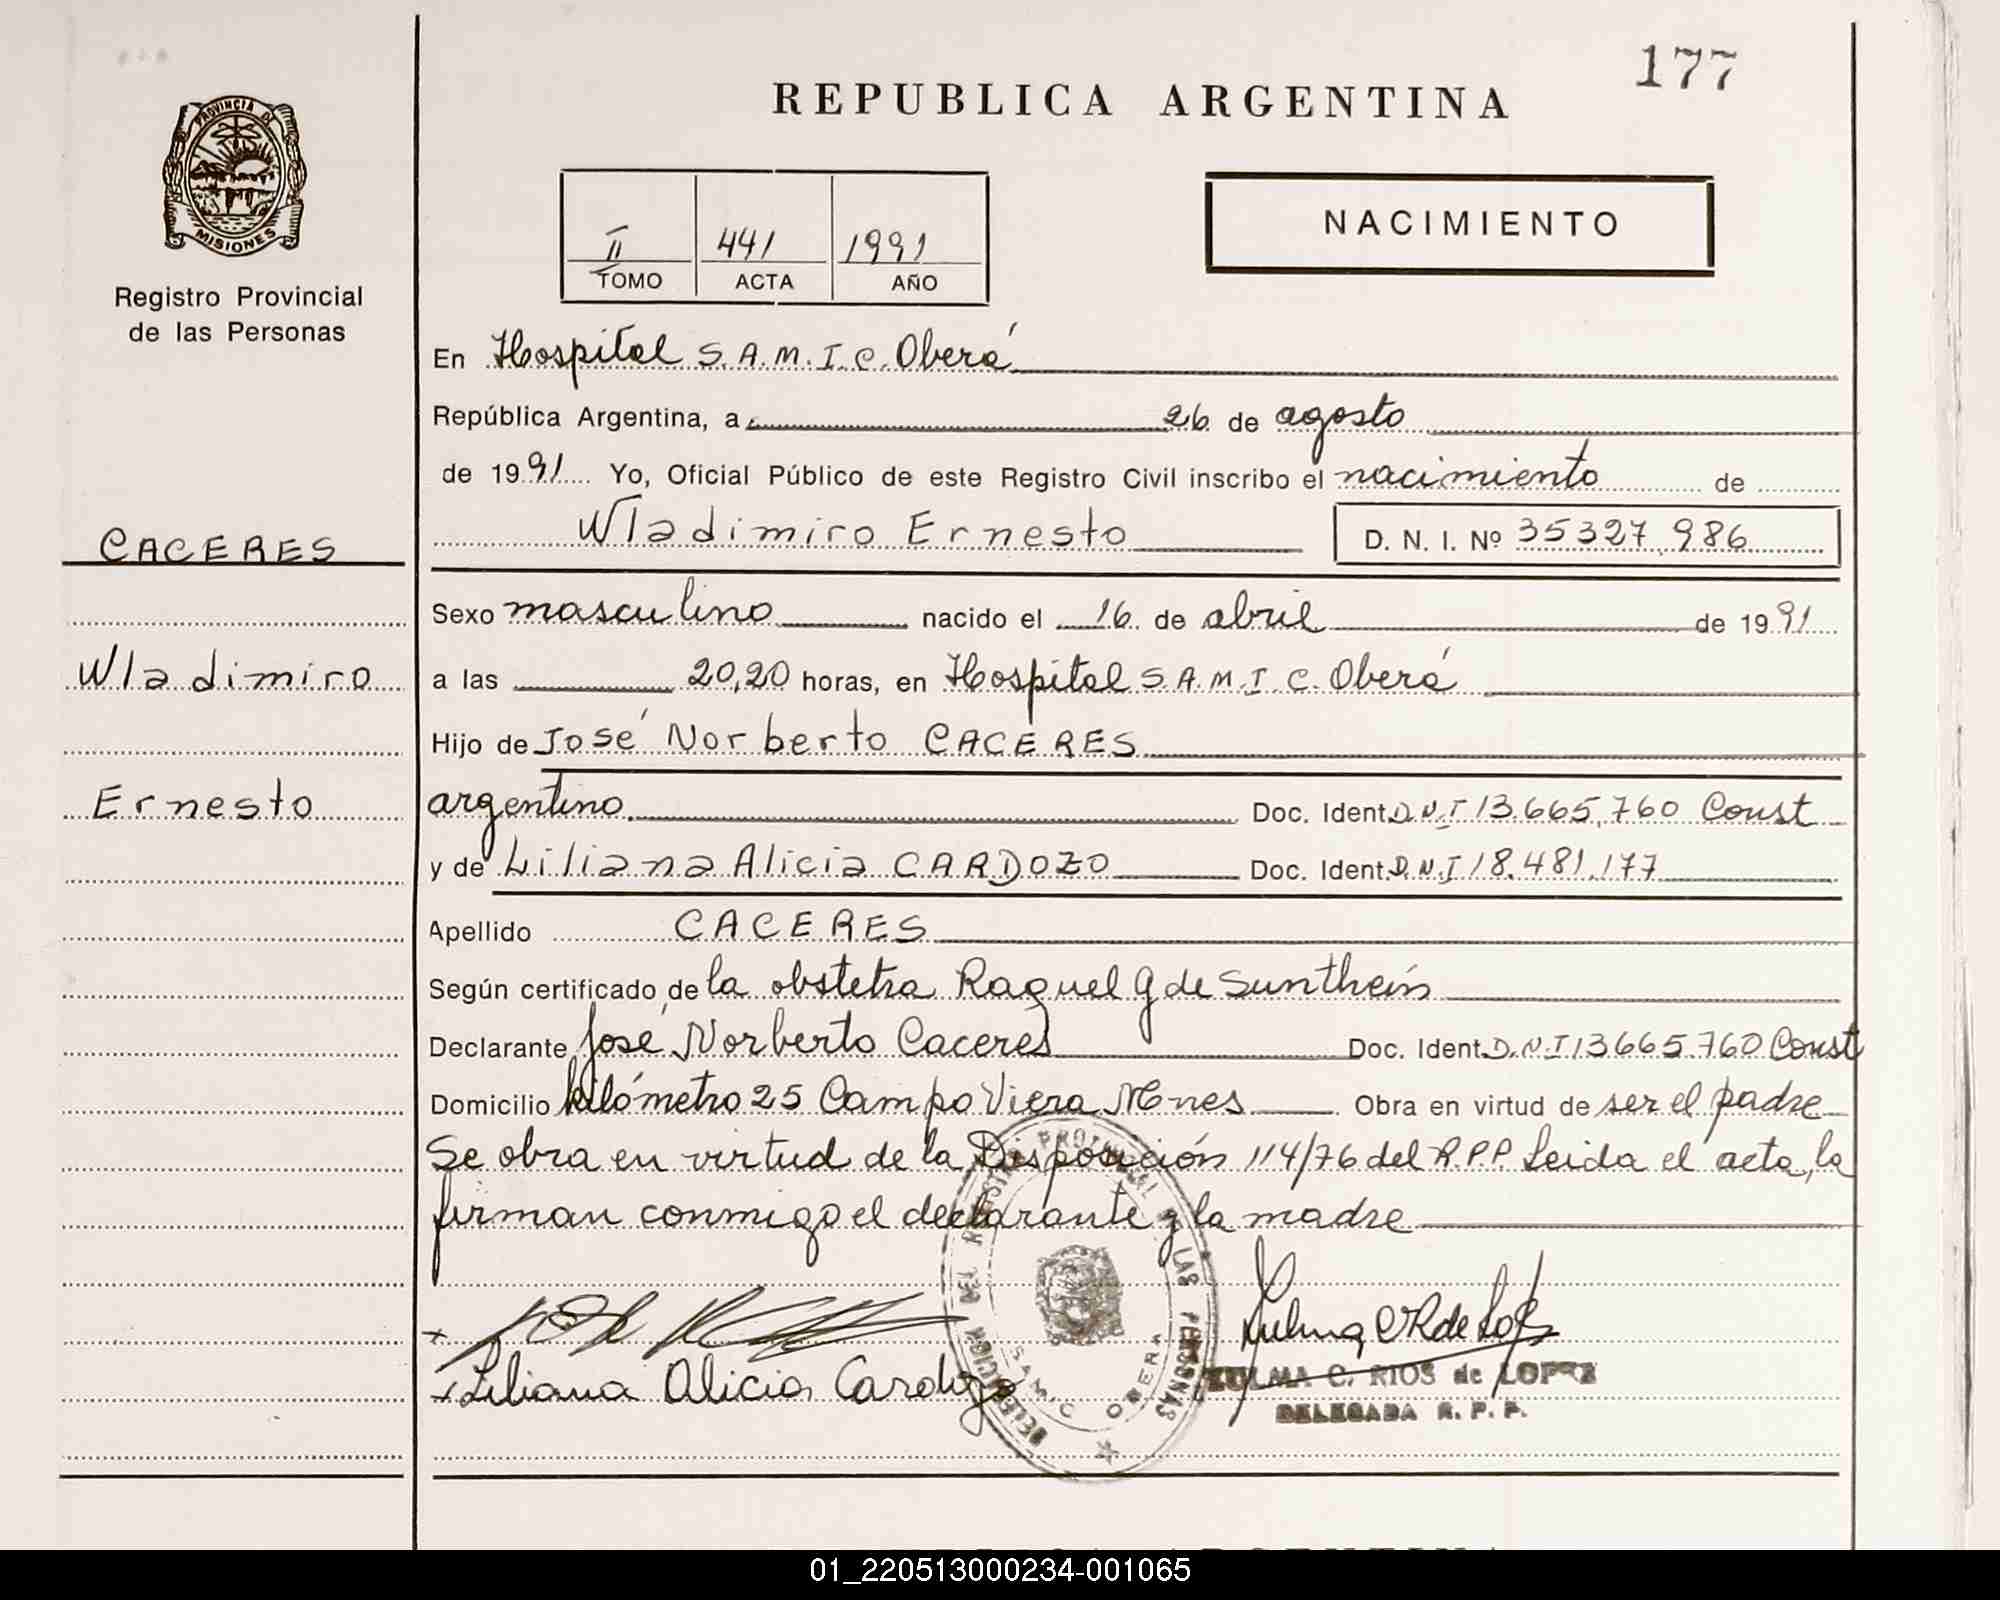 177
REPUBLICA ARGENTINA
PROVINCIA DE
MISIONES
Registro Provincial
de las Personas
NACIMIENTO
II 441 1991
TOMO ACTA AÑO
En Hospital S.A.M.I.C. Oberá
República Argentina, a 26 de agosto
de 1991 Yo, Oficial Público de este Registro Civil inscribo el nacimiento de
Wladimiro Ernesto D. N. I. Nº 35327.986
CACERES
Wladimiro
Ernesto
Sexo masculino nacido el 16 de abril de 1991
a las 20,20 horas, en Hospital S.A.M.I.C. Oberá
Hijo de José Norberto CACERES
argentino Doc. Ident. D.N.I 13.665.760 Const
y de Liliana Alicia CARDOZO Doc. Ident. D.N.I 18.481.177
Apellido CACERES
Según certificado de la obstetra Raquel G de Sunthein
Declarante José Norberto Caceres Doc. Ident. D.N.I 13665.760 Const
Domicilio kilómetro 25 Campo Viera Mnes Obra en virtud de ser el padre
Se obra en virtud de la Disposición 114/76 del R.P.P. Leida el acta, la
firman conmigo el declarante y la madre
Liliana Alicia Cardozo
DELEGACION DEL REGISTRO PROVINCIAL DE LAS PERSONAS
S.A.M.I.C OBERA
ZULMA C. RIOS de LOPEZ
DELEGADA R. P. P.
01_220513000234-001065